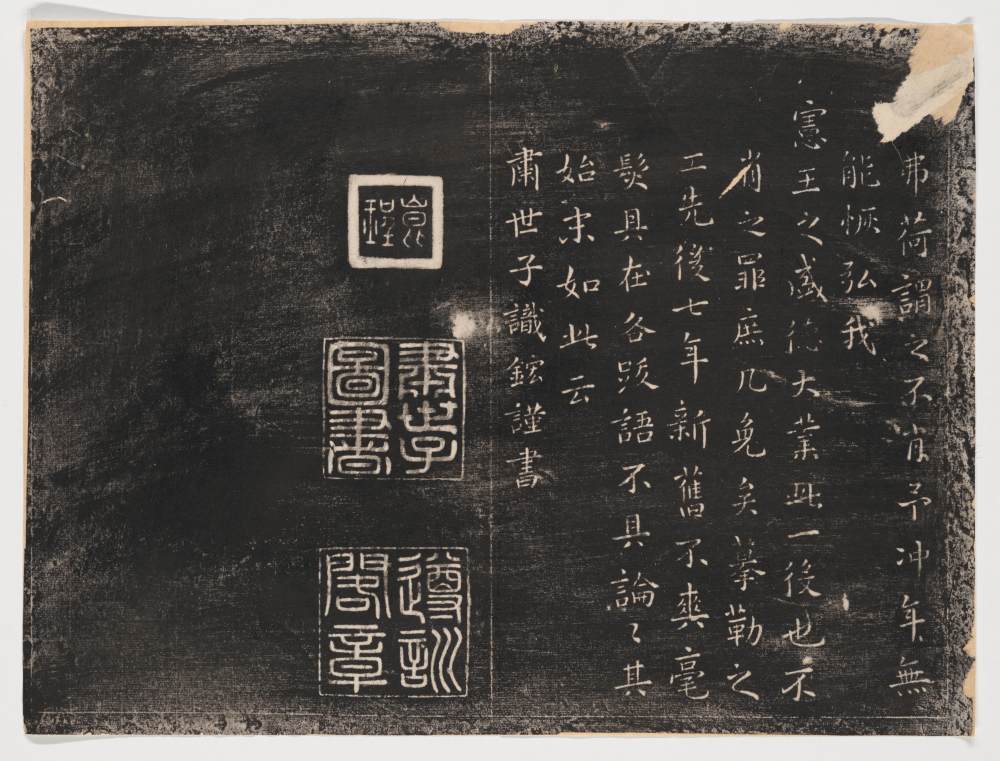 弗荷謂之不肖予冲年無
能恢弘我
憲王之盛德大業此一役也不
肖之罪庶几免矣摹勒之
工先後七年新舊不爽毫
髮具在各跋語不具論々其
始末如此云
肅世子識鋐謹書
肅世子圖書
遵訓閣章